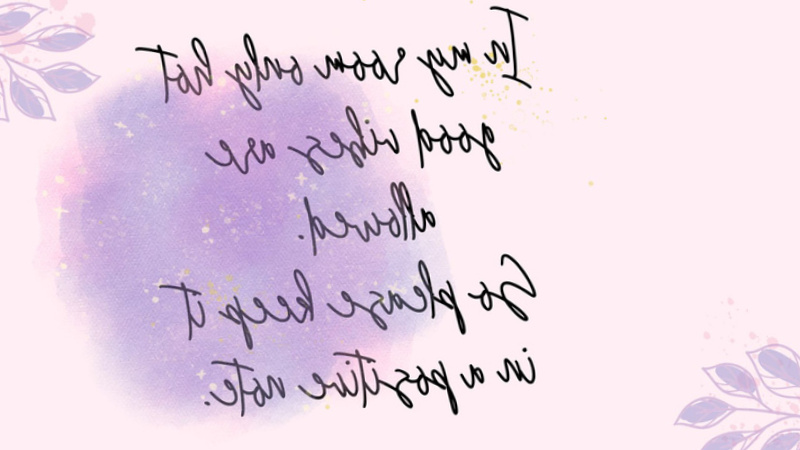 In my room only hot
good vibes are
allowed.
So please keep it
in a positive note.